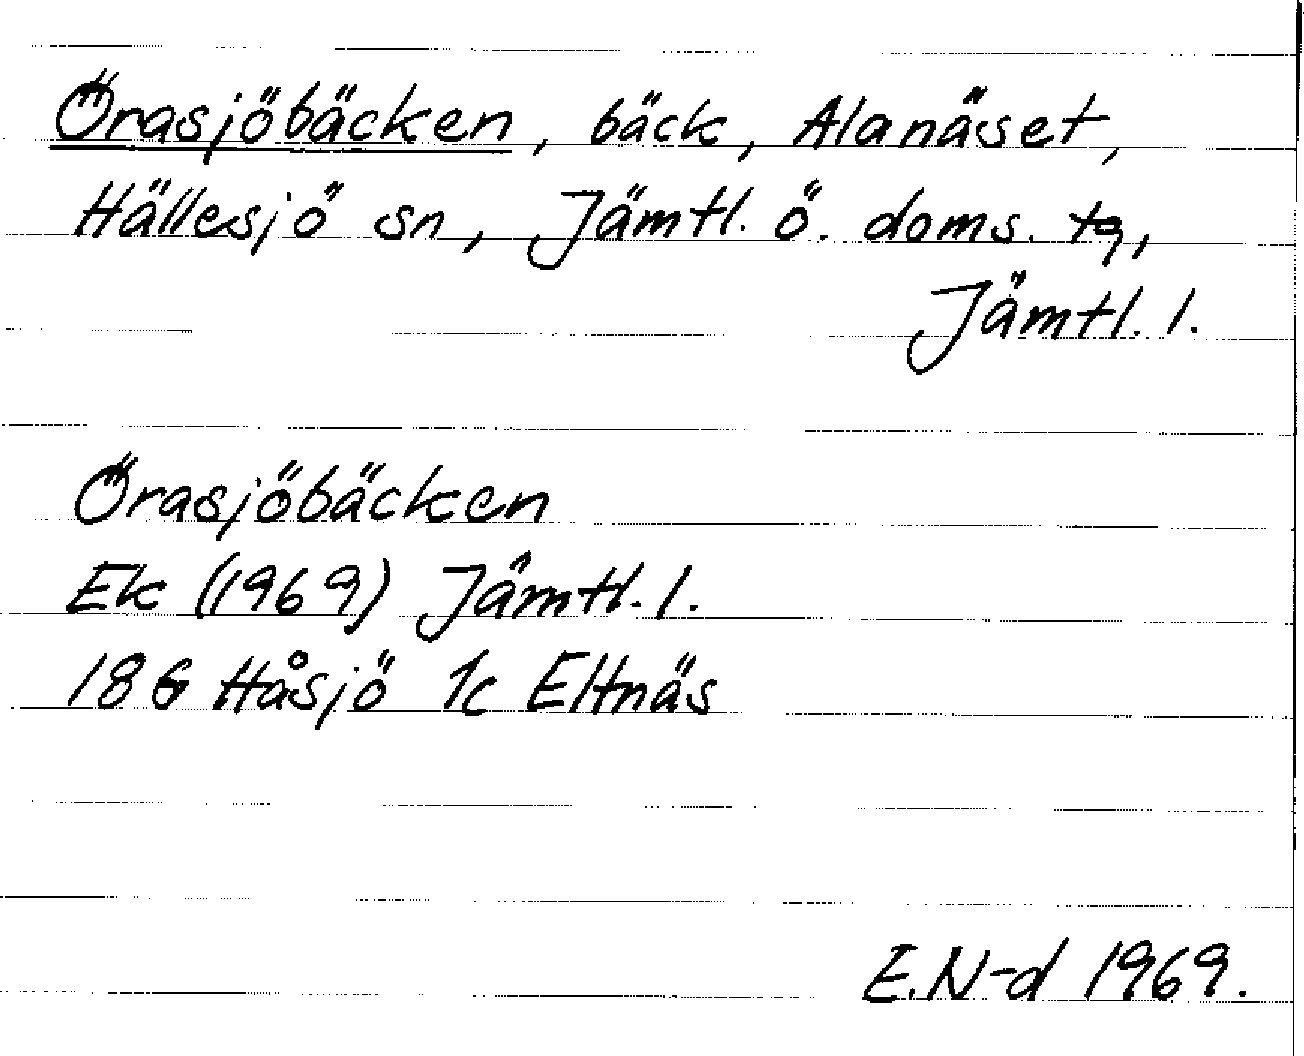 Örasjöbäcken, bäck, Alanäset,
Hällesjö sn, Jämtl. ö. doms. tg,
Jämtl. l.
Örasjöbäcken
Ek (1969) Jämtl. l.
18 G Håsjö 1c Eltnäs
E.N-d 1969.